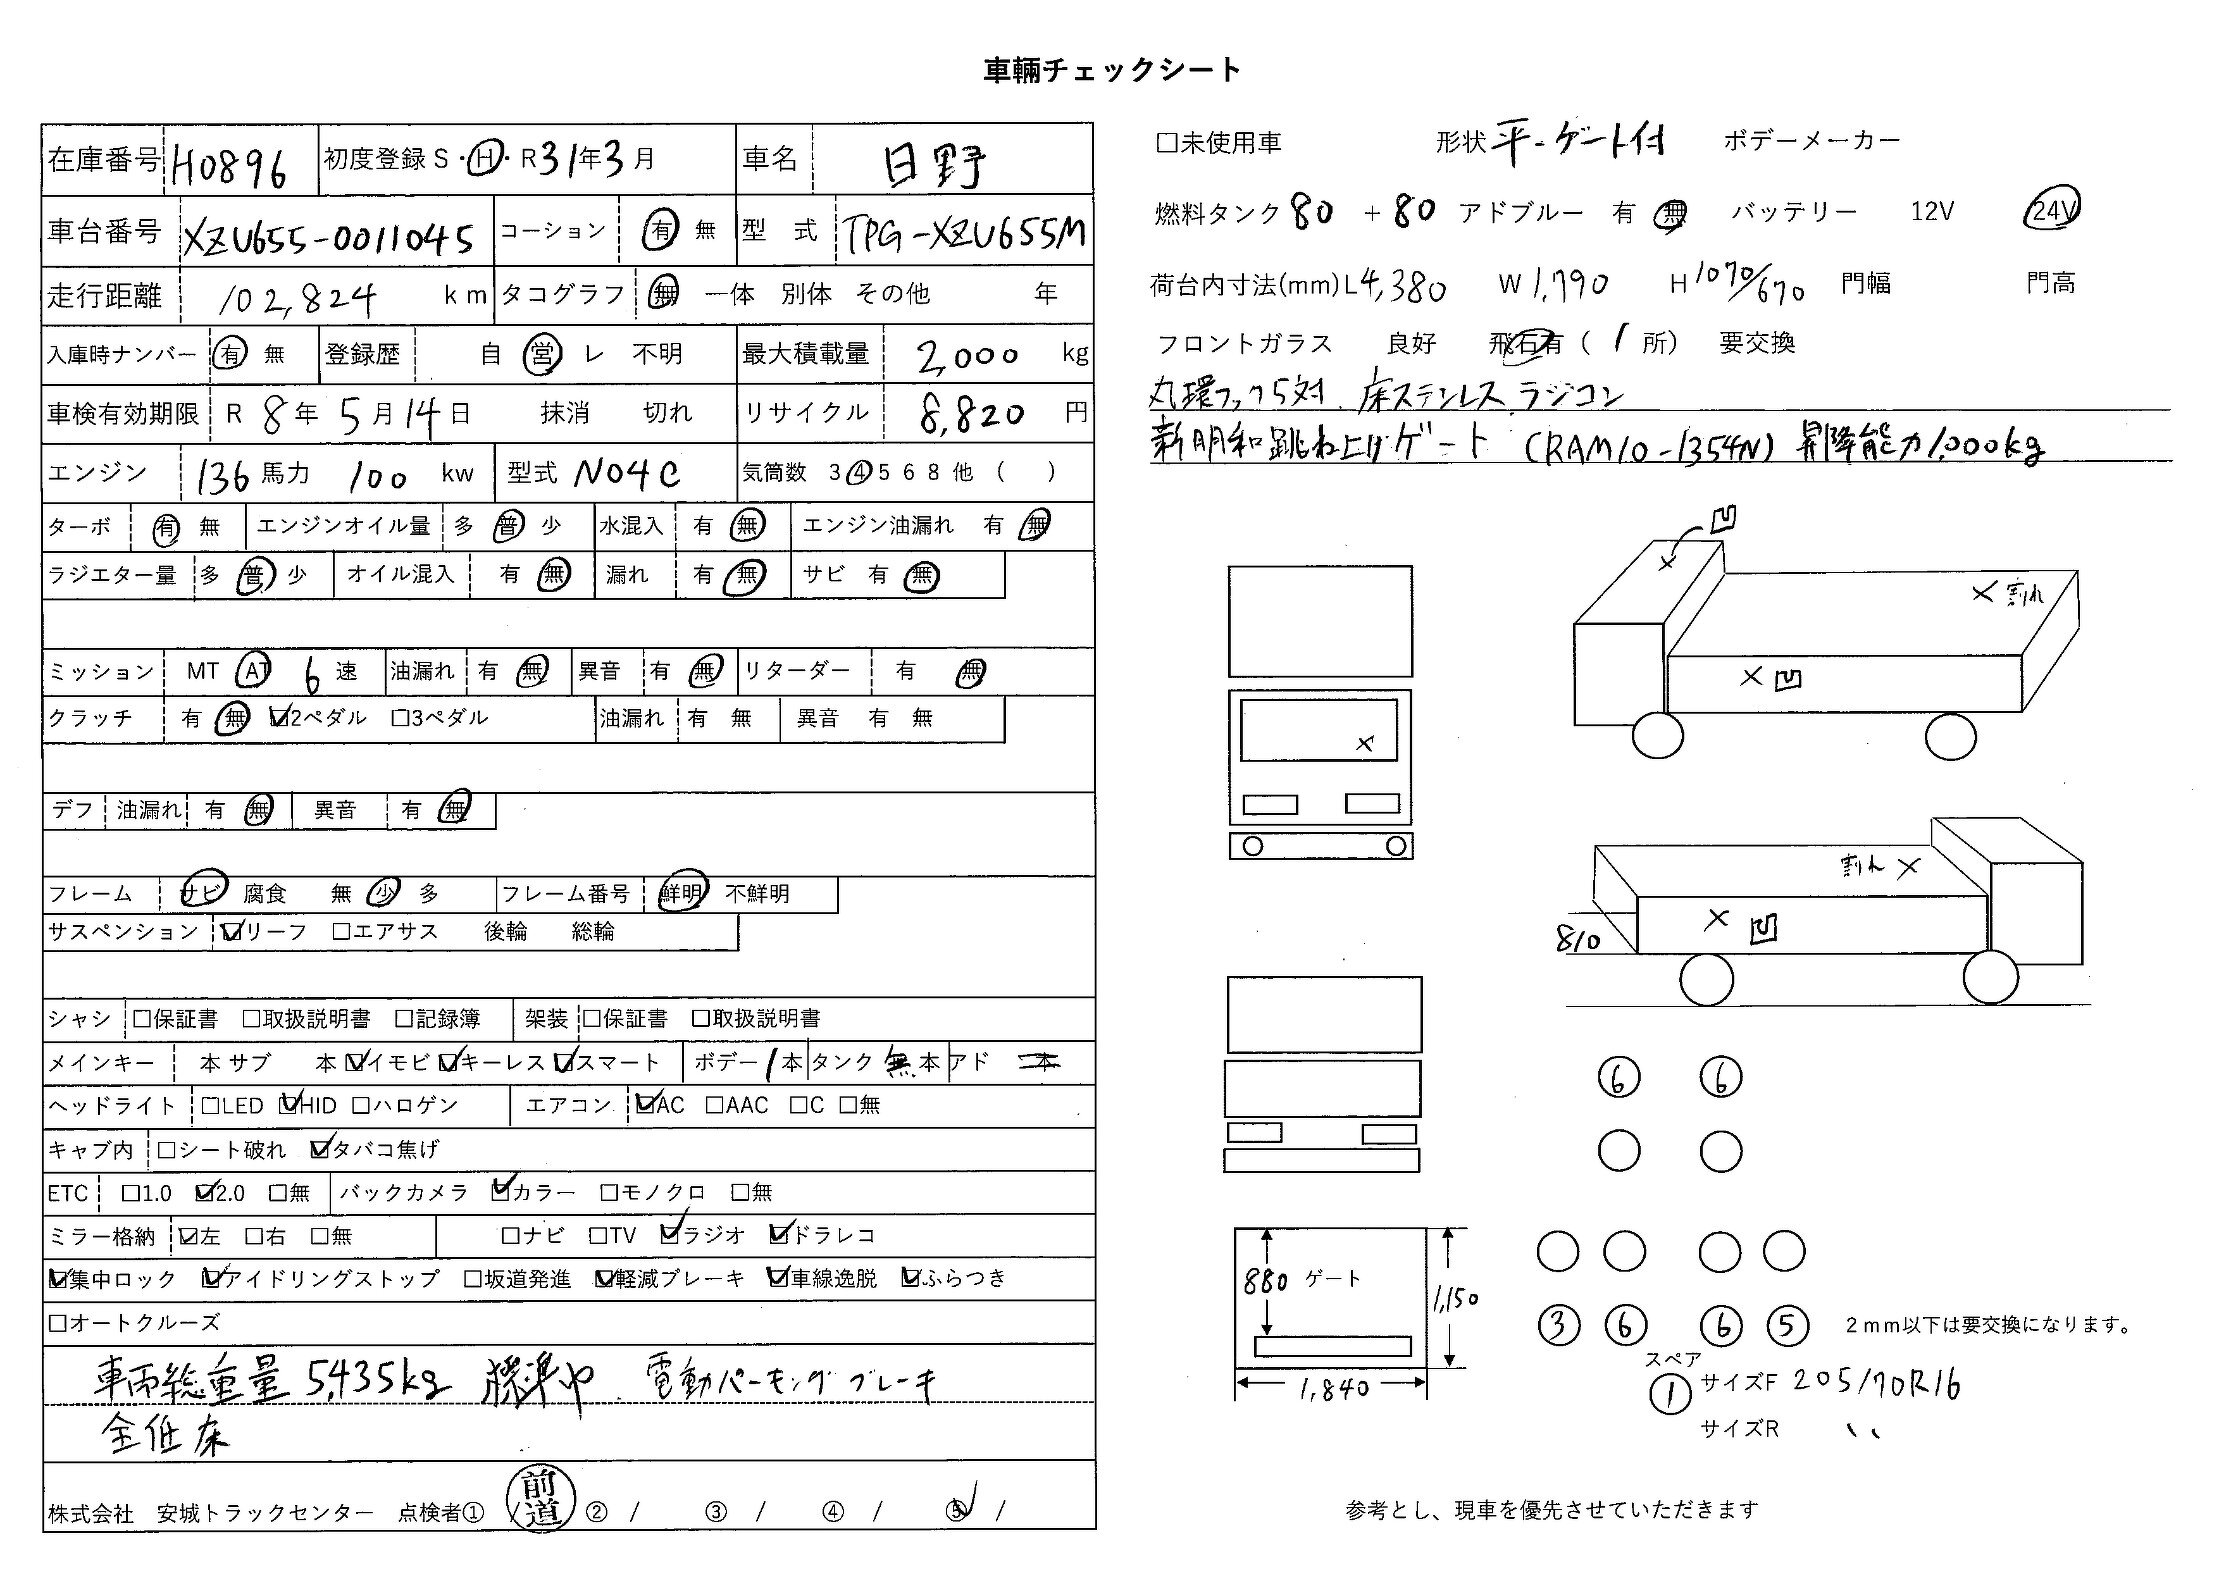 車輛チェックシート
在庫番号 H0896 初度登録 S・Ⓗ・R 31年3月 車名 日野
車台番号 XZU655-0011045 コーション 有 無 型 式 TPG-XZU655M
走行距離 102,824 km タコグラフ 無 一体 別体 その他 年
入庫時ナンバー 有 無 登録歴 自 営 レ 不明 最大積載量 2,000 kg
車検有効期限 R 8年 5月14日 抹消 切れ リサイクル 8,820 円
エンジン 136馬力 100 kw 型式 N04C 気筒数 3 ④ 5 6 8 他 ( )
ターボ 有 無 エンジンオイル量 多 普 少 水混入 有 無 エンジン油漏れ 有 無
ラジエター量 多 普 少 オイル混入 有 無 漏れ 有 無 サビ 有 無
ミッション MT AT 6速 油漏れ 有 無 異音 有 無 リターダー 有 無
クラッチ 有 無 ☑2ペダル □3ペダル 油漏れ 有 無 異音 有 無
デフ 油漏れ 有 無 異音 有 無
フレーム サビ 腐食 無 少 多 フレーム番号 鮮明 不鮮明
サスペンション ☑リーフ □エアサス 後輪 総輪
シャシ □保証書 □取扱説明書 □記録簿 架装 □保証書 □取扱説明書
メインキー 本 サブ 本 ☑イモビ ☑キーレス ☑スマート ボデー 1本 タンク 無 本 アド 本
ヘッドライト □LED ☑HID □ハロゲン エアコン ☑AC □AAC □C □無
キャブ内 □シート破れ ☑タバコ焦げ
ETC □1.0 ☑2.0 □無 バックカメラ ☑カラー □モノクロ □無
ミラー格納 ☑左 □右 □無 □ナビ □TV ☑ラジオ ☑ドラレコ
☑集中ロック ☑アイドリングストップ □坂道発進 ☑軽減ブレーキ ☑車線逸脱 ☑ふらつき
□オートクルーズ
車両総重量 5,435kg 標準巾、電動パーキングブレーキ
全低床
株式会社 安城トラックセンター 点検者① / 前道 ② / ③ / ④ / ⑤ /
□未使用車 形状 平-ゲート付 ボデーメーカー
燃料タンク 80 + 80 アドブルー 有 無 バッテリー 12V 24V
荷台内寸法(mm) L4,380 W1,790 H1070/670 門幅 門高
フロントガラス 良好 飛石有 ( 1 所) 要交換
丸環フック5対、床ステンレス ラジコン
新明和跳ね上げゲート (RAM10-1354N) 昇降能力1,000kg
凹
× × 割れ
× 凹
×
割れ ×
× 凹
810
⑥ ⑥
880 ゲート 1,150
1,840
③ ⑥ ⑥ ⑤ 2mm以下は要交換になります。
スペア
① サイズF 205/70R16
サイズR 〃
参考とし、現車を優先させていただきます